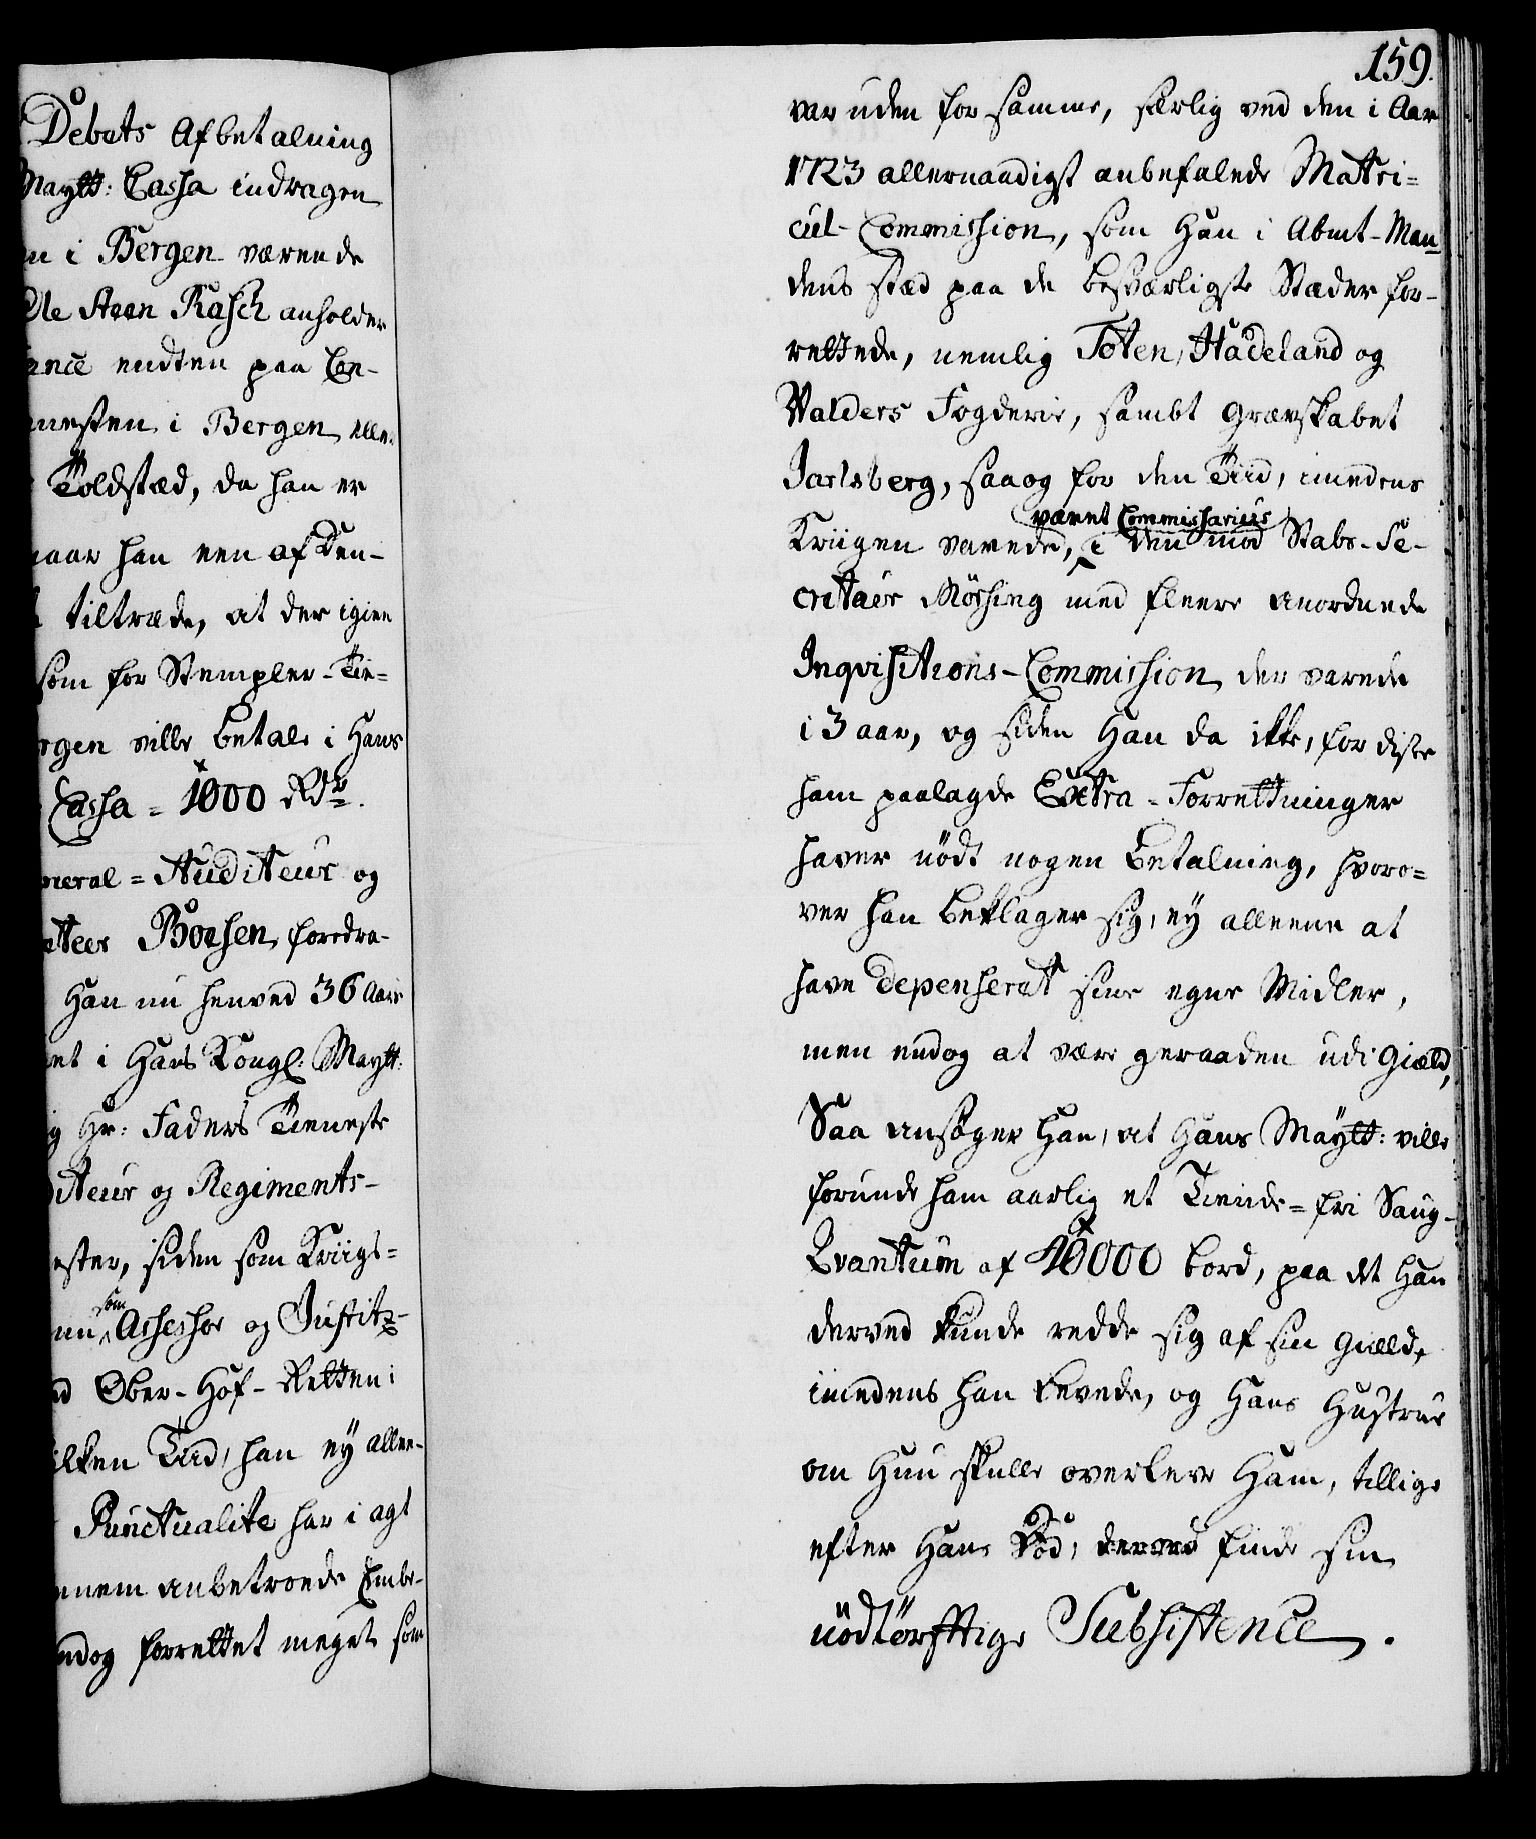 Debets Afbetalning
Maytt: Cassa indragen
i Bergen værende
Ole Steen Rasch anholder
endten paa Con-
nesten i Bergen eller
Toldstæd, da han er
naar han een af den-
tiltræde, at der igien
som for Stempler-Tie-
rgen ville betale i Hans
Cassa = 1000 Rdr.
neral = Auditeur og
Borsen, foredra-
Han nu henved 36 Aar
et i Hans Kongl: Maytt:
Hr: Faders Tieneste
diteur og Regiments-
ester, siden som Kriigs=
nu som Assessor og Justitz-
Ober-Hof-Retten i
ilken Tiid, han ey allee-
Punctualite har i agt
nnem anbetroede Embe-
ndog forrettet meget som
159.
var uden for samme, særlig ved den i Aar
1723 allernaadigst anbefalede Matri=
cul-Commission, som Han i Abmt-Man-
dens stæd paa de besværligste Stæder for-
rettede, nemlig Toten, Hadeland og
Walders Fogderie, sambt Grævskabet
Jarlsberg, saa og for den Tiid, imedens
været Commissarius
Kriigen varede, i den mod Stabs-Se-
cretair Mössing med fleere anordnede
Inqvisitions-Commission, der varede
i 3 aar, og siden Han da ikke, for disse
ham paalagde Extra-Forrettninger
haver nödt nogen Betalning, hvoro=
ver han beklager sig, ey alleene at
have depenserat sine egne Midler,
men endog at være geraaden udi Giæld,
Saa ansøger Han, at Hans Maytt: ville
forunde ham aarlig et Tiende=fri Saug-
Qvantum af 10000 bord, paa det Han
derved kunde redde sig af sin Giæld,
imedens han levede, og Hans Hustrue
om Hun skulle overleve Ham, tillige
efter Hans Död, derved finde sin
nödtörfftige Subsistence.